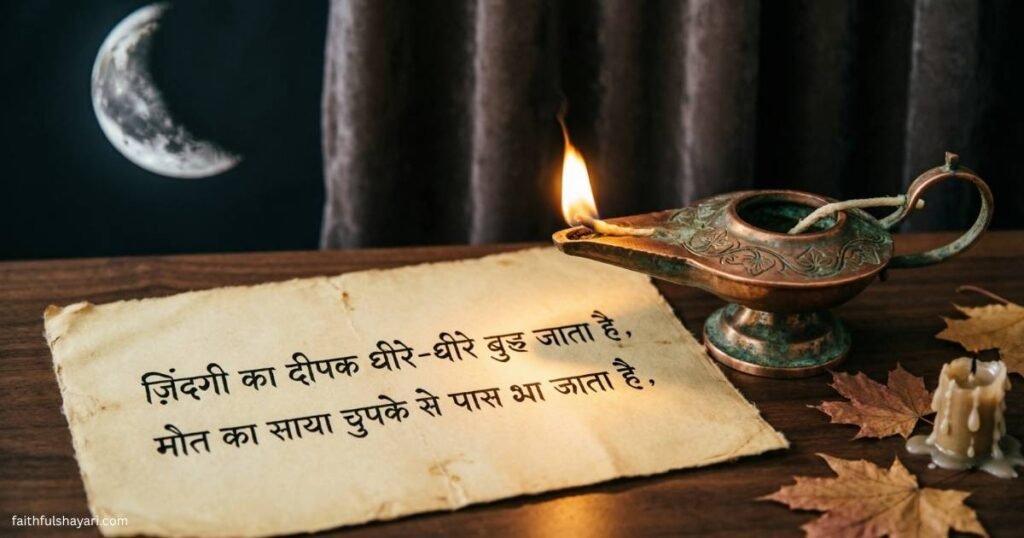 ज़िंदगी का दीपक धीरे-धीरे बुझ जाता है,
मौत का साया चुपके से पास आ जाता है,
faithfulshayari.com